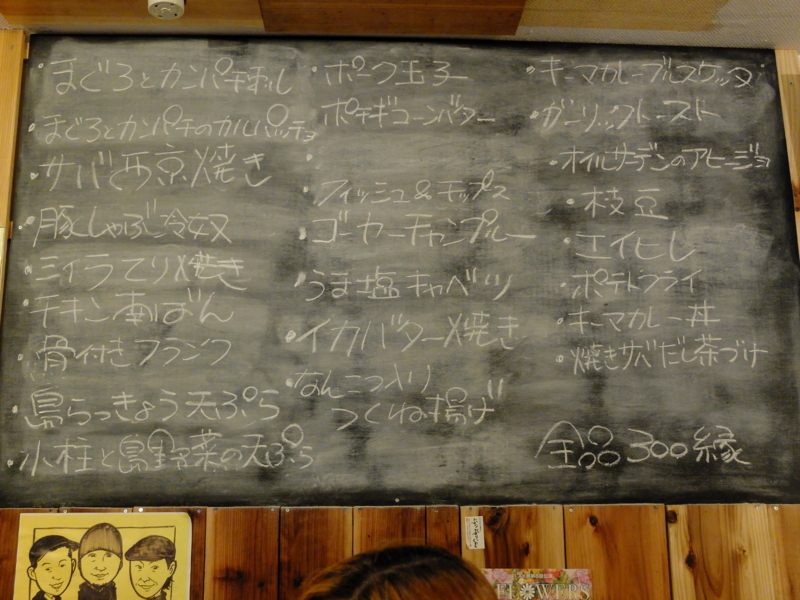 ・まぐろとカンパチ刺し
・まぐろとカンパチのカルパッチョ
・サバ西京焼き
・豚しゃぶ冷奴
・ミィラてり焼き
・チキン南ばん
・骨付きフランク
・島らっきょう天ぷら
・小柱と島野菜の天ぷら
・ポーク玉子
ポテギコーンバター
・フィッシュ&チップス
・ゴーヤーチャンプルー
・うま塩キャベツ
・イカバター焼き
・なんこつ入り
つくね揚げ
・キーマカレーブルスケッタ
・ガーリックトースト
・オイルサーデンのアヒージョ
・枝豆
・エイヒレ
・ポテトフライ
・キーマカレー丼
・焼きサバだし茶づけ
全品300縁
FLOWERS